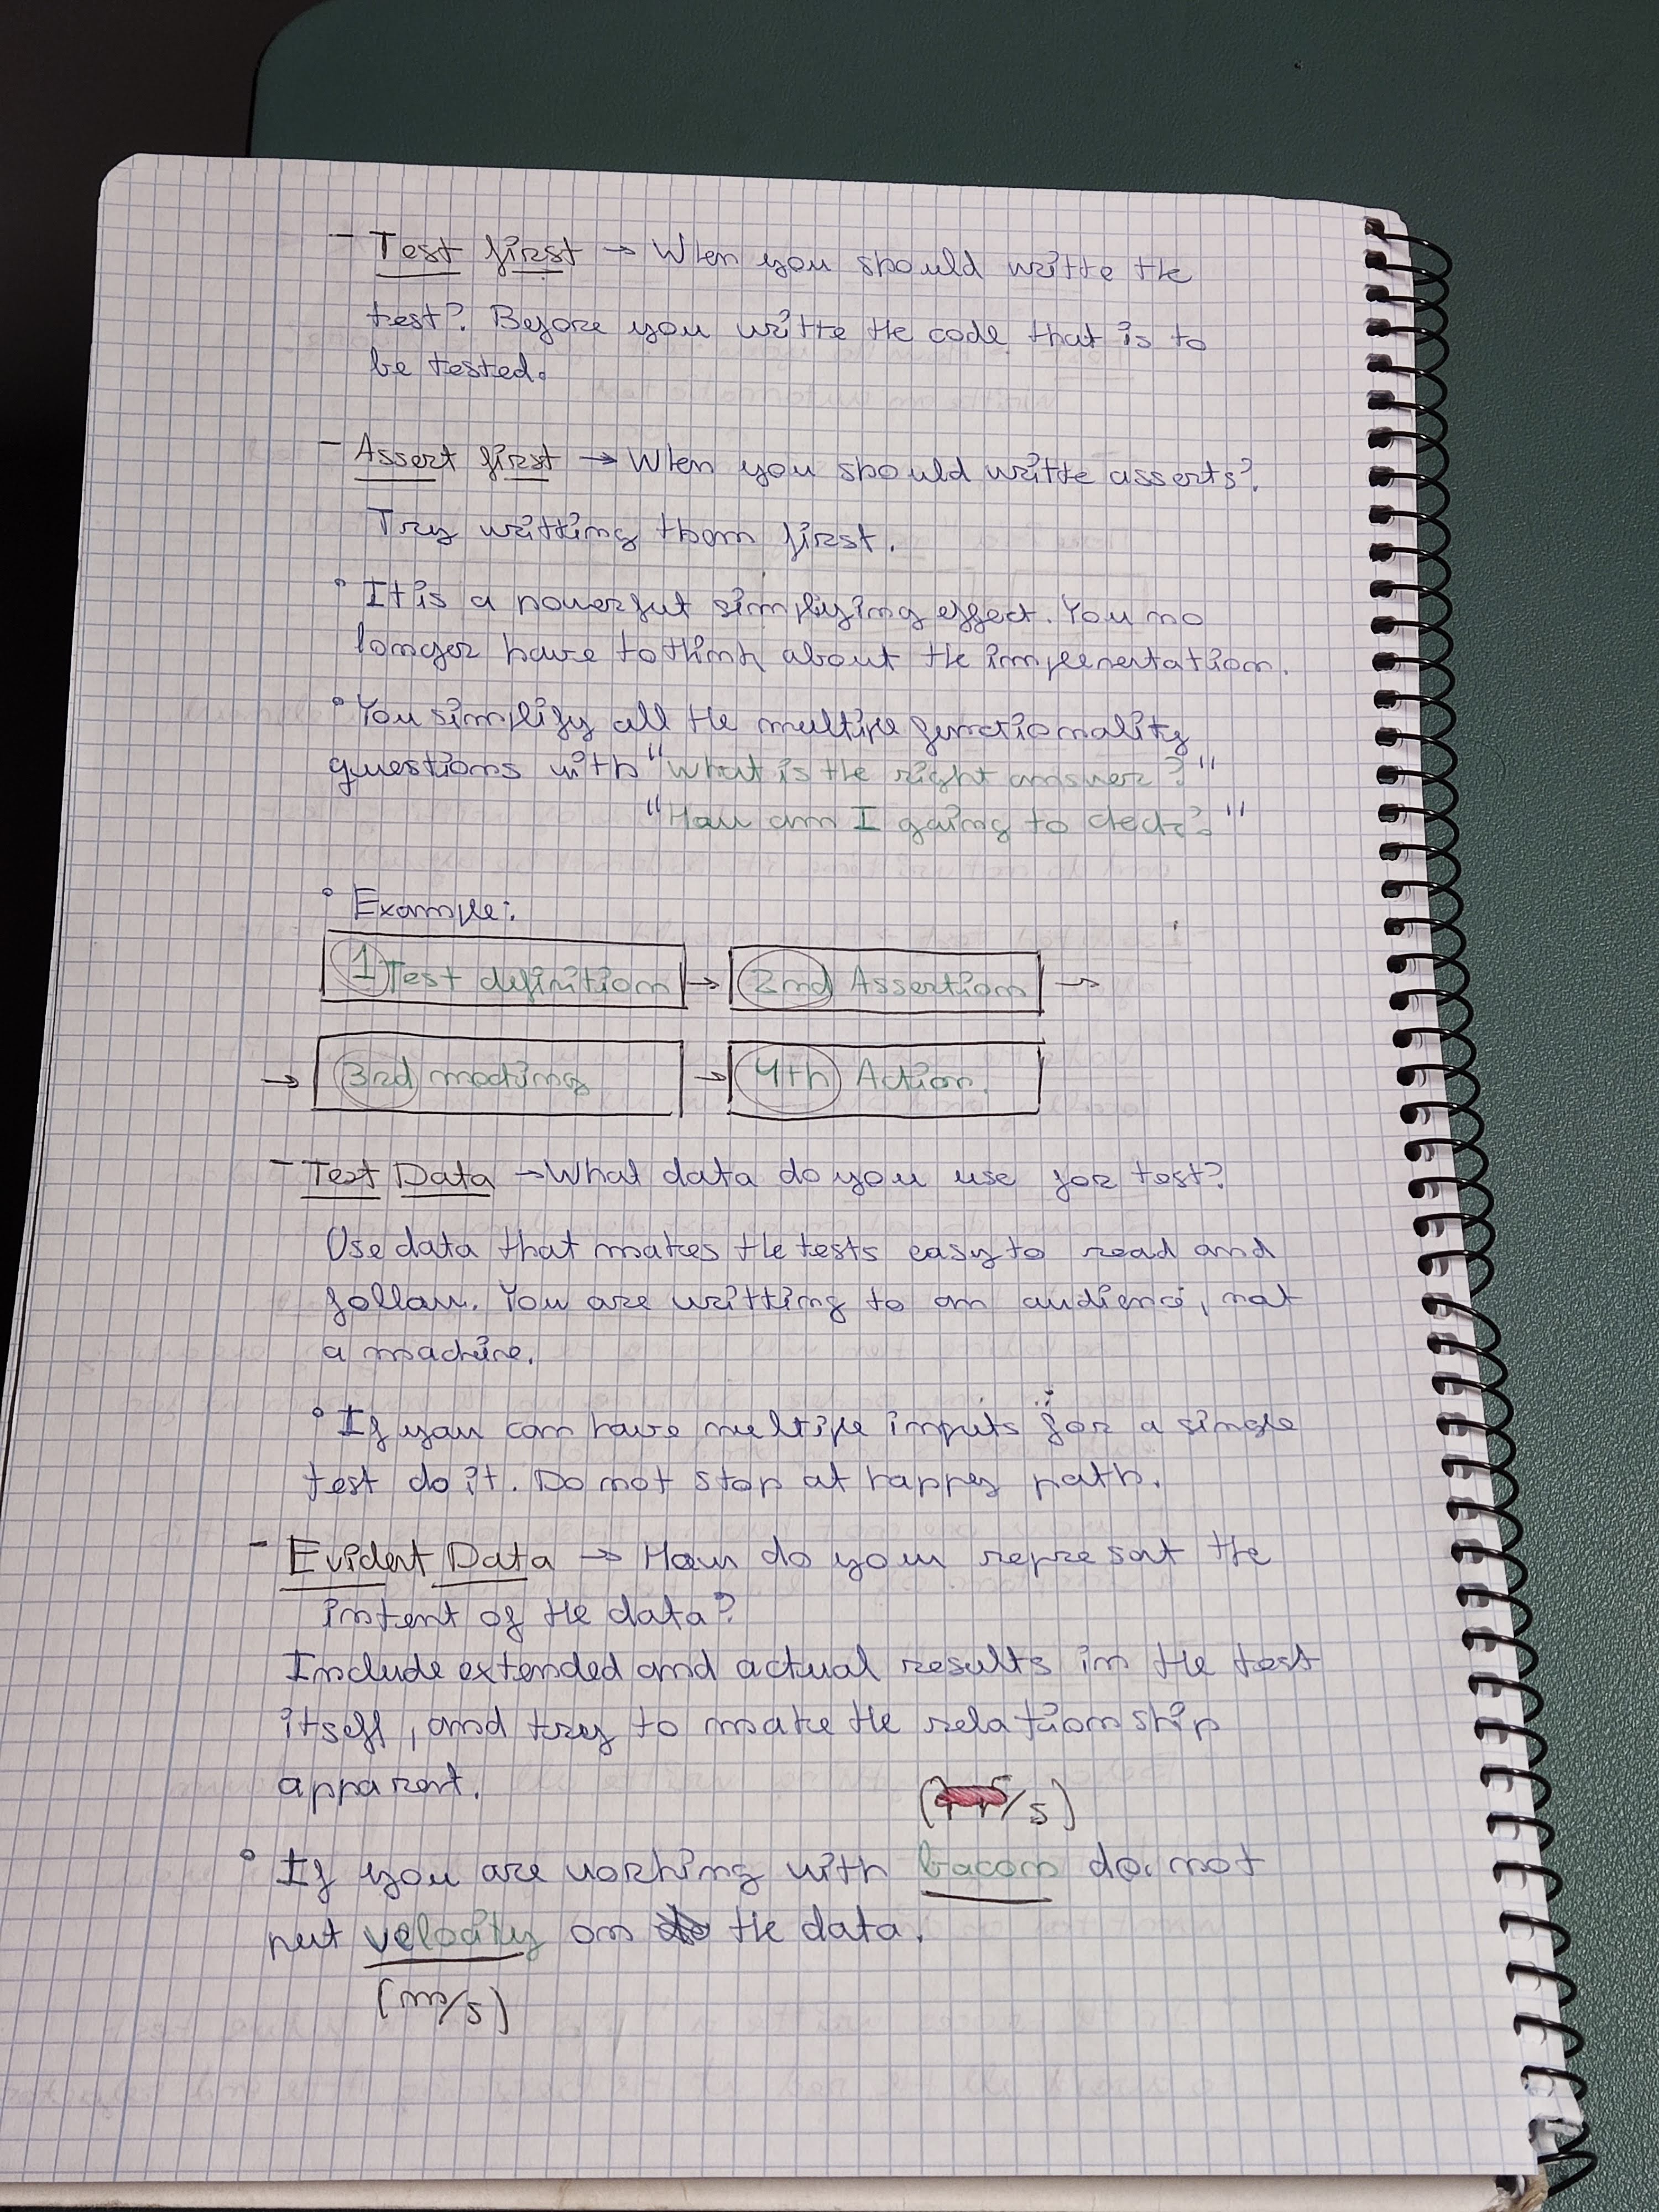 - Test first → When you should writte the
test? Before you writte the code that is to
be tested.
- Assert first → When you should writte asserts?
Try writting them first.
° It is a powerfut simpliying effect. You no
longer have to think about the implementation.
° You simplify all the multiple functionality
questions with "What is the right answer?"
"How am I going to check?"
° Example:
1 Test definition → 2nd Assertion →
→ 3rd mocking → 4th Action.
- Test Data → What data do you use for test?
Use data that makes the tests easy to read and
follow. You are writting to an audience, not
a machine.
° If you can have multiple inputs for a single
test do it. Do not stop at happy path.
- Evident Data → How do your represent the
intent of the data?
Include extended and actual results in the test
itself, and try to make the relationship
apparent.
( /s)
° If you are working with bacon do not
put velocity on the data.
(m/s)